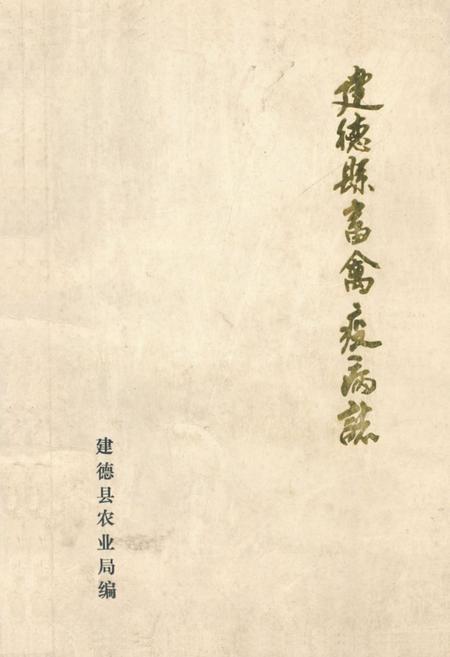 建德縣畜禽疫病誌
建德县农业局编